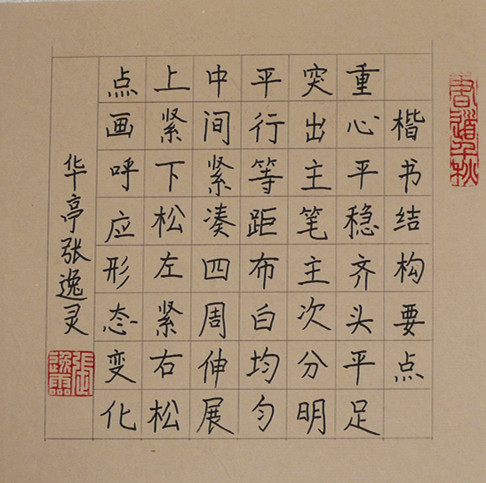 楷书结构要点
重心平稳齐头平足
突出主笔主次分明
平行等距布白均匀
中间紧凑四周伸展
上紧下松左紧右松
点画呼应形态变化
华亭张逸灵
书道千秋
张逸灵